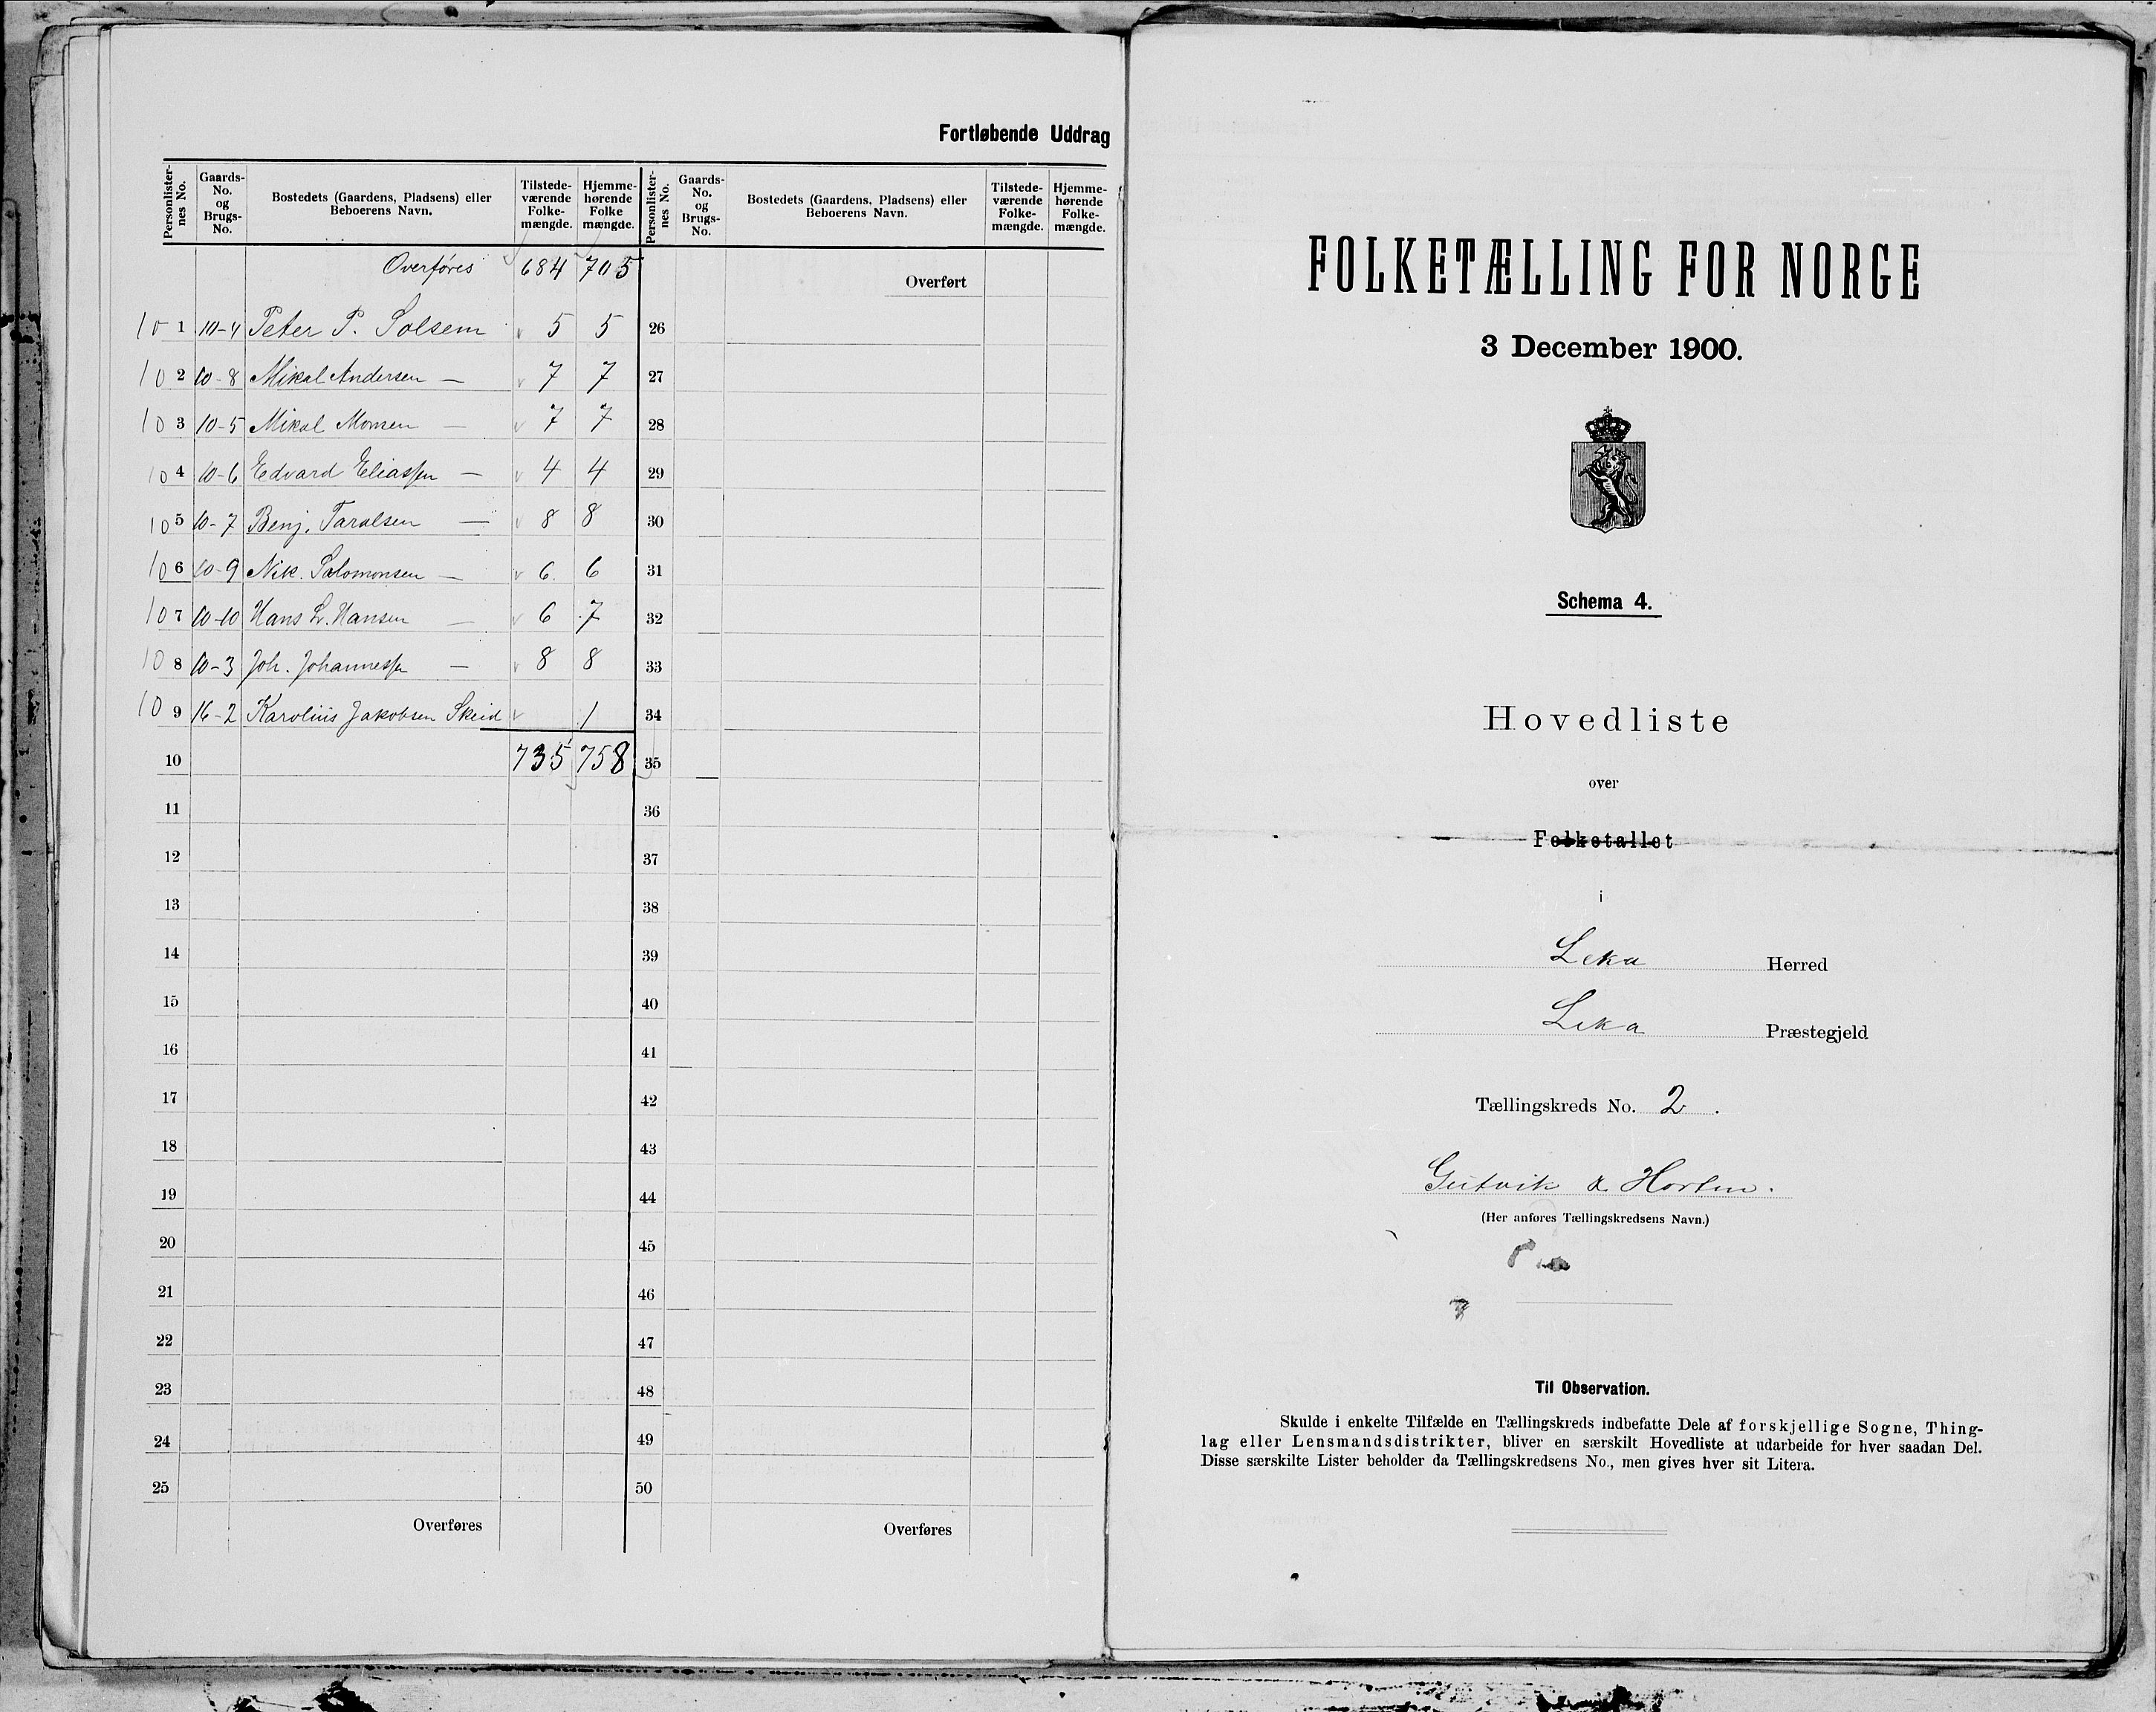 Fortløbende Uddrag
Personlister-nes No. Gaards-No. og Brugs-No. Bostedets (Gaardens, Pladsens) eller Beboerens Navn. Tilstede-værende Folke-mængde. Hjemme-hørende Folke mængde. Personlister-nes No. Gaards-No. og Brugs-No. Bostedets (Gaardens, Pladsens) eller Beboerens Navn. Tilstede-værende Folke-mængde. Hjemme-hørende Folke-mængde.
Overføres 684 705 Overført
101 10-4 Peter P. Solsem 5 5 26
102 10-8 Mikal Andersen — 7 7 27
103 10-5 Mikal Monsen — 7 7 28
104 10-6 Edvard Eliassen — 4 4 29
105 10-7 Benj. Taralsen — 8 8 30
106 10-9 Nik. Salomonsen — 6 6 31
107 10-10 Hans L. Hansen — 6 7 32
108 10-3 Joh. Johannessen — 8 8 33
109 16-2 Karolius Jakobsen Skeid 1 34
10 735 758 35
11 36
12 37
13 38
14 39
15 40
16 41
17 42
18 43
19 44
20 45
21 46
22 47
23 48
24 49
25 50
Overføres Overføres
FOLKETÆLLING FOR NORGE
3 December 1900.
Schema 4.
Hovedliste
over
Folketallet
i
Leka Herred
Leka Præstegjeld
Tællingskreds No. 2.
Gutvik & Horten.
(Her anføres Tællingskredsens Navn.)
Til Observation.
Skulde i enkelte Tilfælde en Tællingskreds indbefatte Dele af forskjellige Sogne, Thing-
lag eller Lensmandsdistrikter, bliver en særskilt Hovedliste at udarbeide for hver saadan Del.
Disse særskilte Lister beholder da Tællingskredsens No., men gives hver sit Litera.